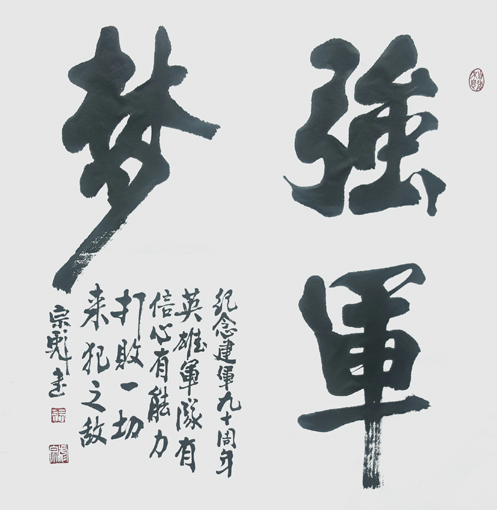 強軍
梦
纪念建軍九十周年
英雄軍隊有
信心有能力
打敗一切
来犯之敌
宗彪书